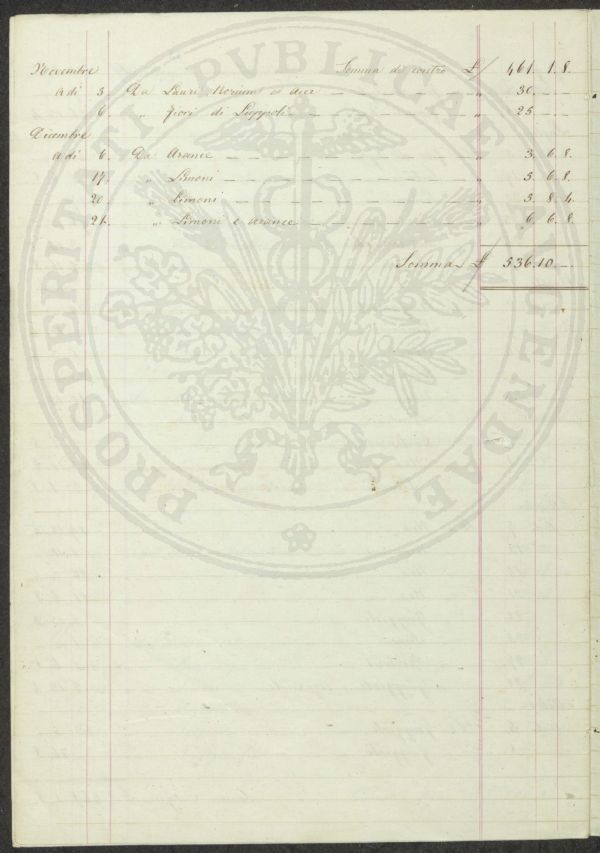 PROSPERITATI PVBLICAE AVGENDAE
Novembre Somma di contro £ 461. 1. 8.
A di 3. Da Lauri 30. –
6. " fiori di " 25. –
Dicembre
A di 6. Da Arance " 3. 6. 8.
17. " Limoni " 5. 6. 8.
20. " Limoni " 5. 8. 4.
21. " Limoni e arance " 6. 6. 8.
Somma £ 536. 10. –